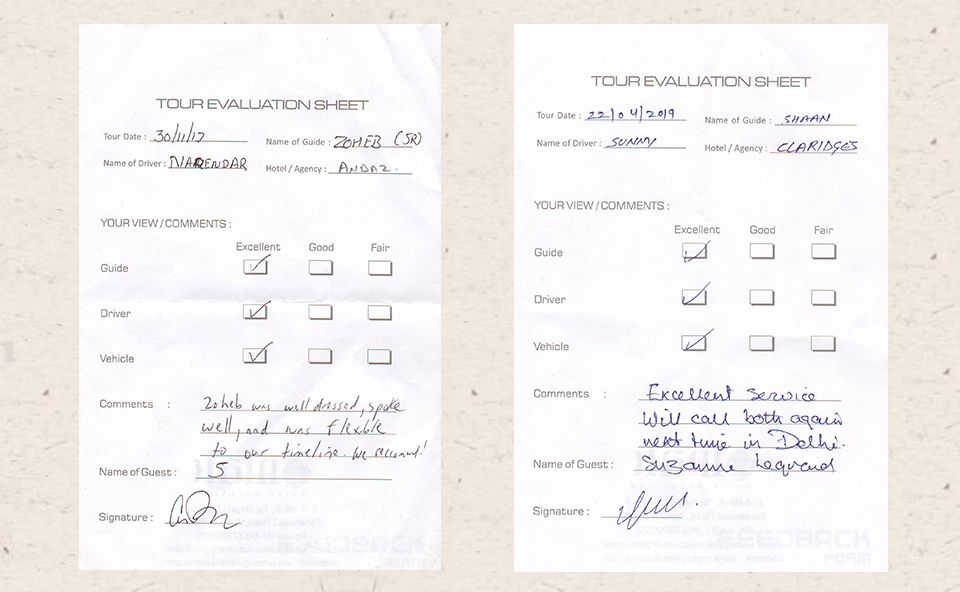 TOUR EVALUATION SHEET
Tour Date : 30/11/17
Name of Guide : ZOHEB (SR)
Name of Driver : NARENDAR
Hotel / Agency : ANDAZ.
YOUR VIEW / COMMENTS :
Excellent Good Fair
Guide
Driver
Vehicle
Comments : Zoheb was well dressed, spoke
well, and was flexible
to our timeline. We recommend!
Name of Guest : 5
Signature :
TOUR EVALUATION SHEET
Tour Date : 22/04/2019
Name of Guide : SHAAN
Name of Driver : SUNNY
Hotel / Agency : CLARIDGES
YOUR VIEW / COMMENTS :
Excellent Good Fair
Guide
Driver
Vehicle
Comments : Excellent service
Will call both again
next time in Delhi.
Name of Guest : Suzanne Legrand
Signature :
FEEDBACK
FORM